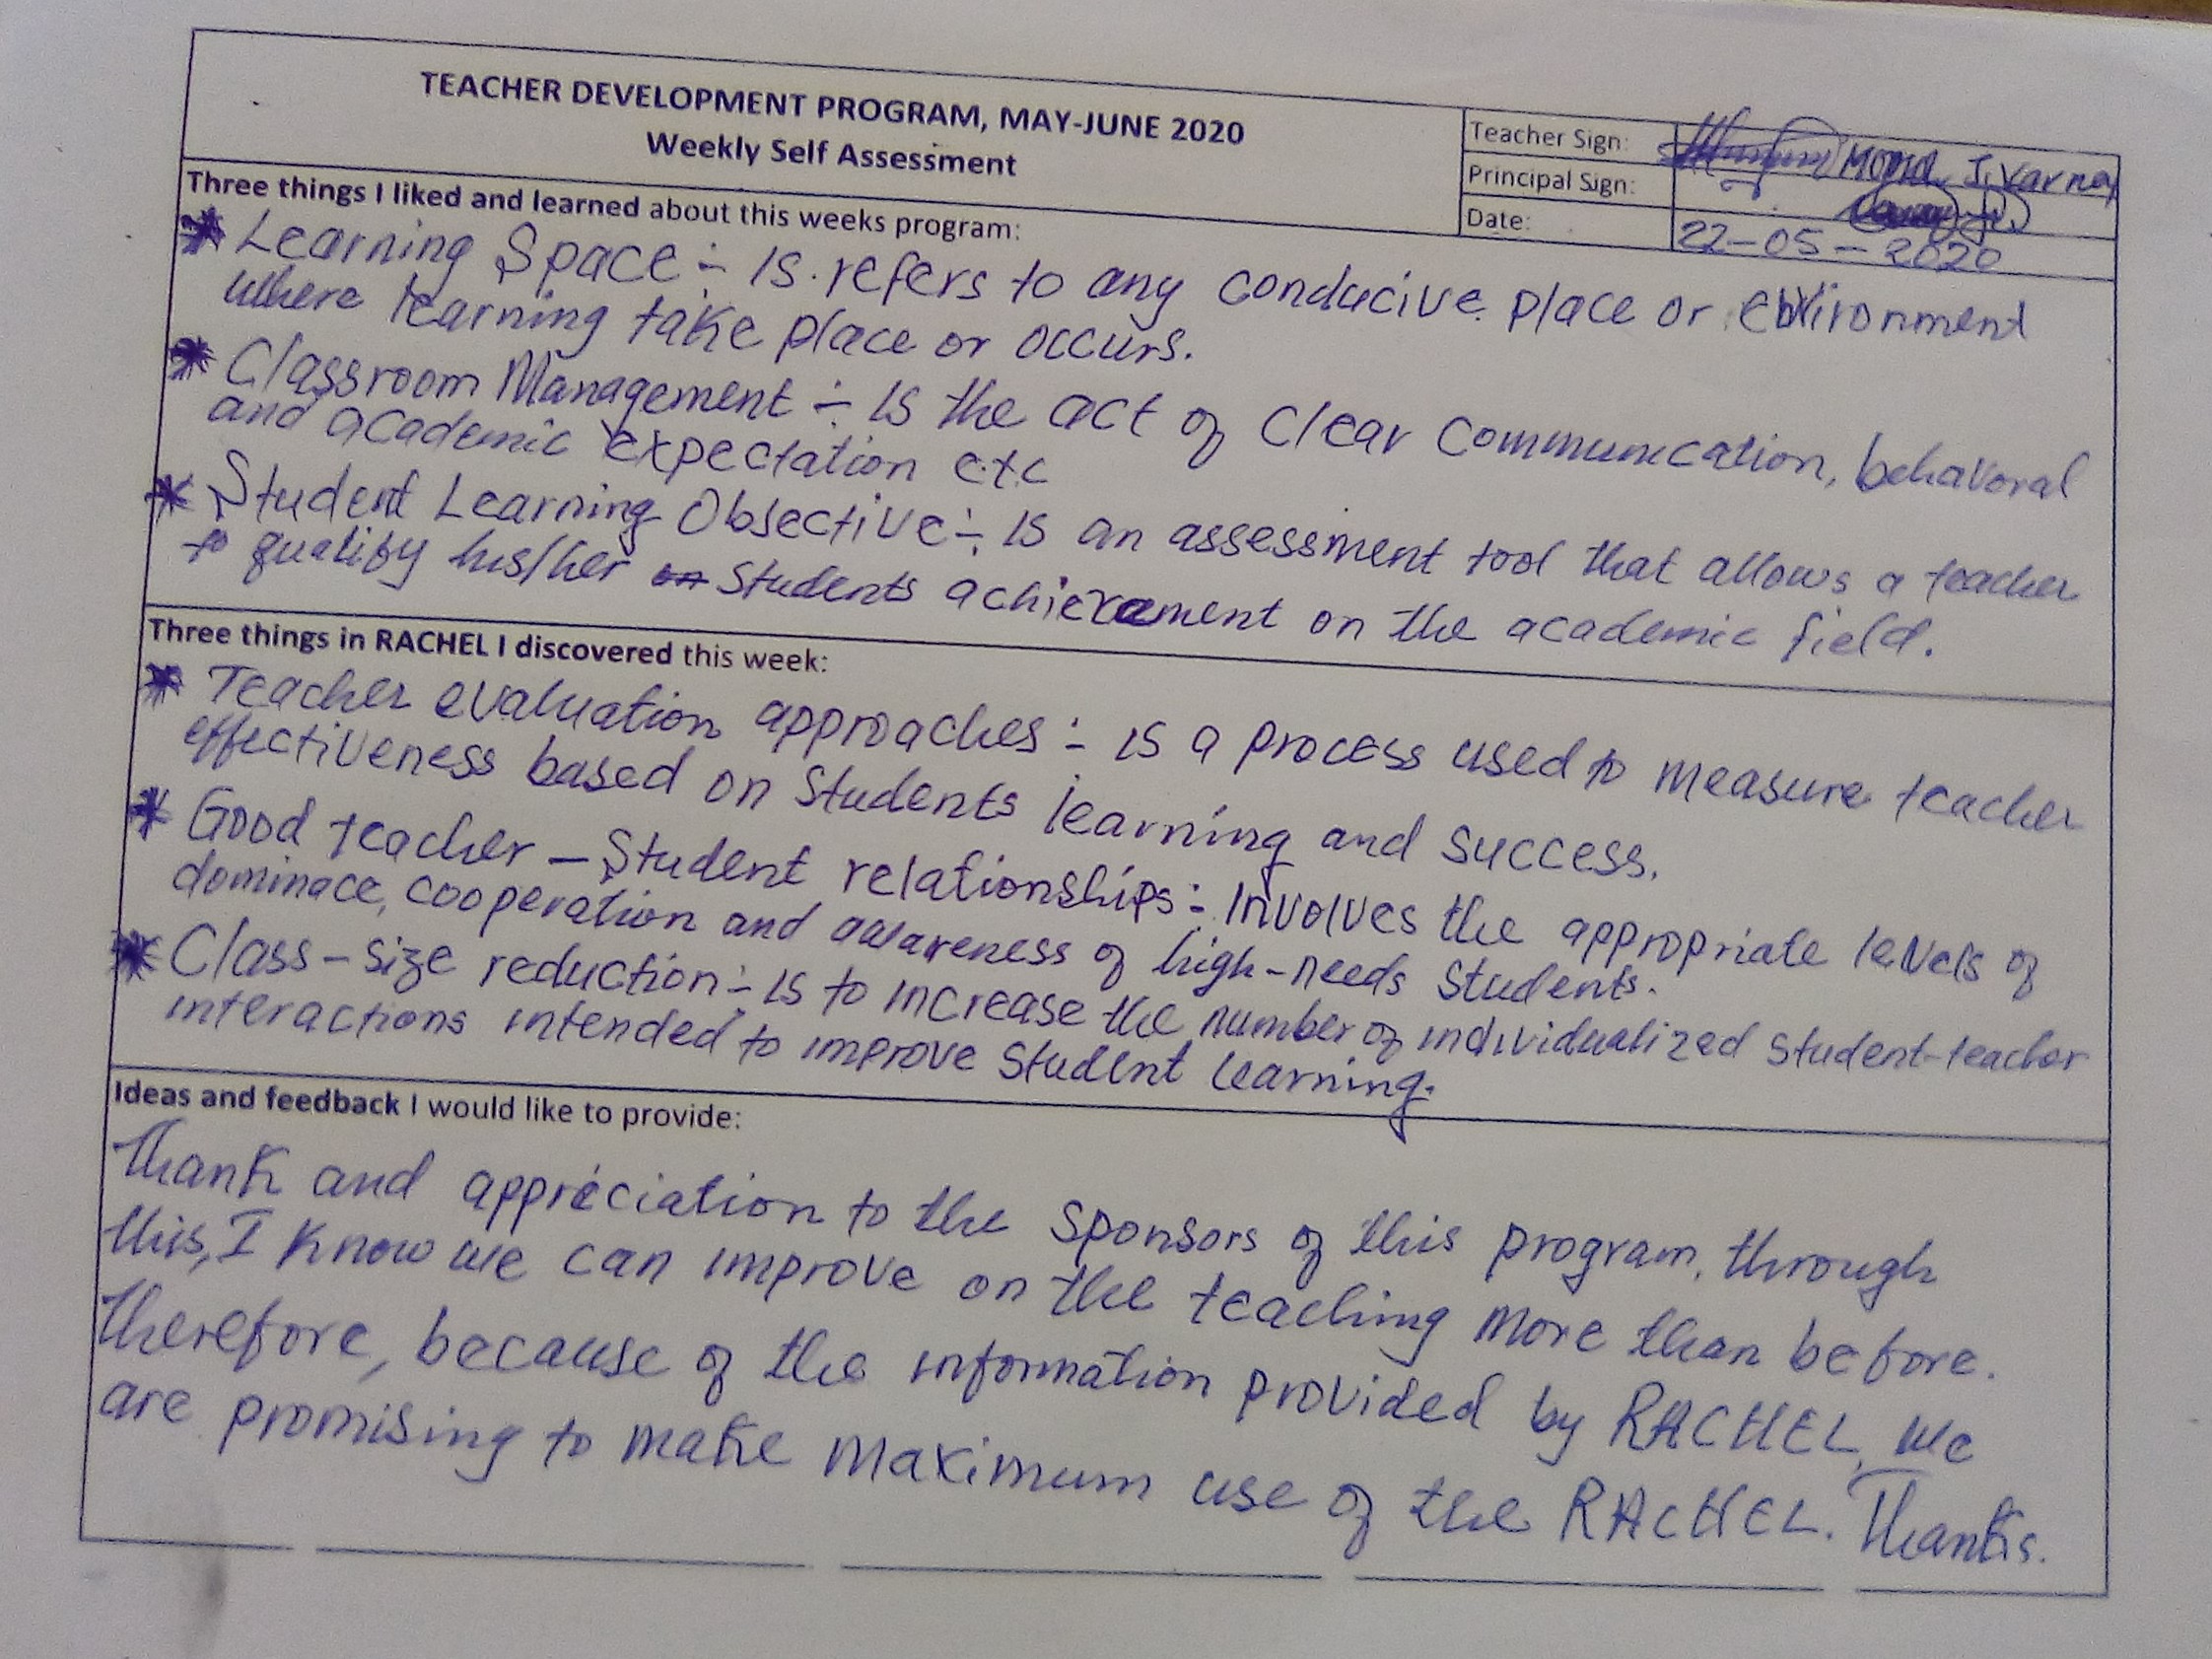 TEACHER DEVELOPMENT PROGRAM, MAY-JUNE 2020
Weekly Self Assessment
Teacher Sign:
Principal Sign:
Date: 22-05-2020
Three things I liked and learned about this weeks program:
* Learning Space :- is refers to any conducive place or environment
where learning take place or occurs.
* Classroom Management :- is the act of clear communication, behavoral
and academic expectation etc
* Student Learning Obsective :- is an assessment tool that allows a teacher
to qualify his/her students achievement on the academic field.
Three things in RACHEL I discovered this week:
* Teacher evaluation approaches :- is a process used to measure teacher
effectiveness based on students learning and success.
* Good teacher - Student relationships :- involves the appropriate levels of
dominace, cooperation and awareness of high-needs students.
* Class-size reduction :- is to increase the number of individualized student-teacher
interactions intended to improve student learning.
Ideas and feedback I would like to provide:
Thank and appreciation to the sponsors of this program, through
this, I know we can improve on the teaching more than before.
Therefore, because of the information provided by RACHEL, we
are promising to make maximum use of the RACHEL. Thanks.